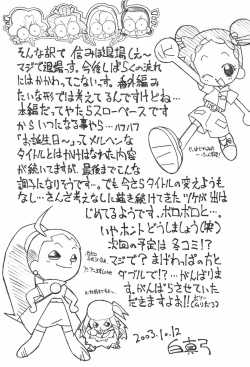 そんな訳で 信みは退場(え〜
マジで退場っす。今後しばらくの流れ
にはかかわってこないっす。番外編み
たいな形では考えてるんですけどね…
本編だってやたらスローペースです
からいつになる事やら…ハフハフ
「お誕生日〜」ってメルヘンな
タイトルとはかけはなれた内容
が続いてますが、最後までこんな
調子になりそうです…。でも今さらタイトルの変えようも
なし…さんざ考えなしに描き続けてきたツケが出は
じめてるようです。ボロボロと…。
いやホントどうしましょう(笑)
次回の予定は 冬コミ!?
マジで? まけねっばの方と
ダブルで!?… がんばりま
す。がんばらさせていた
だきますよお!!
2003.10.12